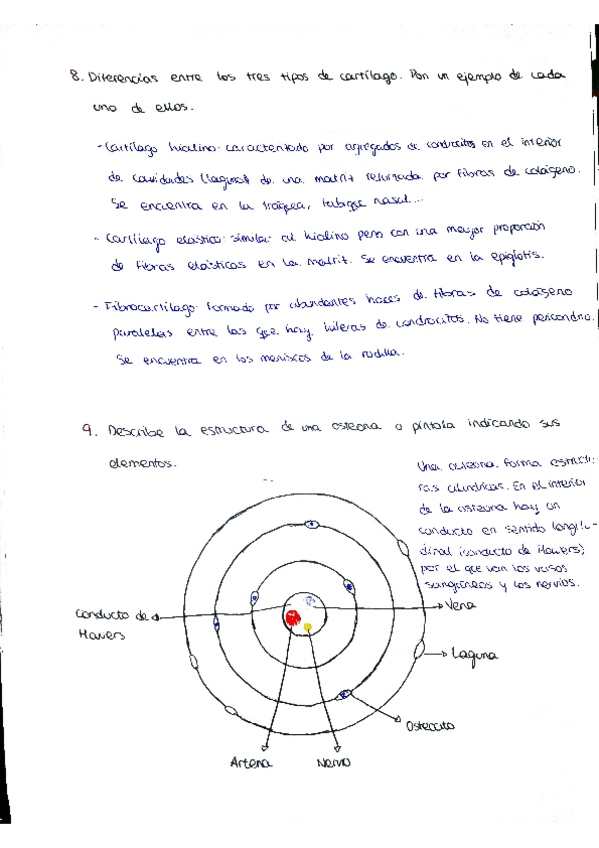 8. Diferencias entre los tres tipos de cartílago. Pon un ejemplo de cada
uno de ellos.
- Cartílago hialino: caracterizado por agregados de condrocitos en el interior
de cavidades (lagunas) de una matriz reforzada por fibras de colágeno.
Se encuentra en la tráquea, tabique nasal...
- Cartílago elástico: similar al hialino pero con una mayor proporción
de fibras elásticas en la matriz. Se encuentra en la epiglotis.
- Fibrocartílago: formado por abundantes haces de fibras de colágeno
paralelas entre las que hay hileras de condrocitos. No tiene pericondrio.
Se encuentra en los meniscos de la rodilla.
9. Describe la estructura de una osteona o píntala indicando sus
elementos.
Una osteona forma estructu-
ras cilíndricas. En el interior
de la osteona hay un
conducto en sentido longitu-
dinal (conducto de Havers)
por el que van los vasos
sanguíneos y los nervios.
Conducto de
Havers
Vena
Laguna
Osteocito
Arteria
Nervio